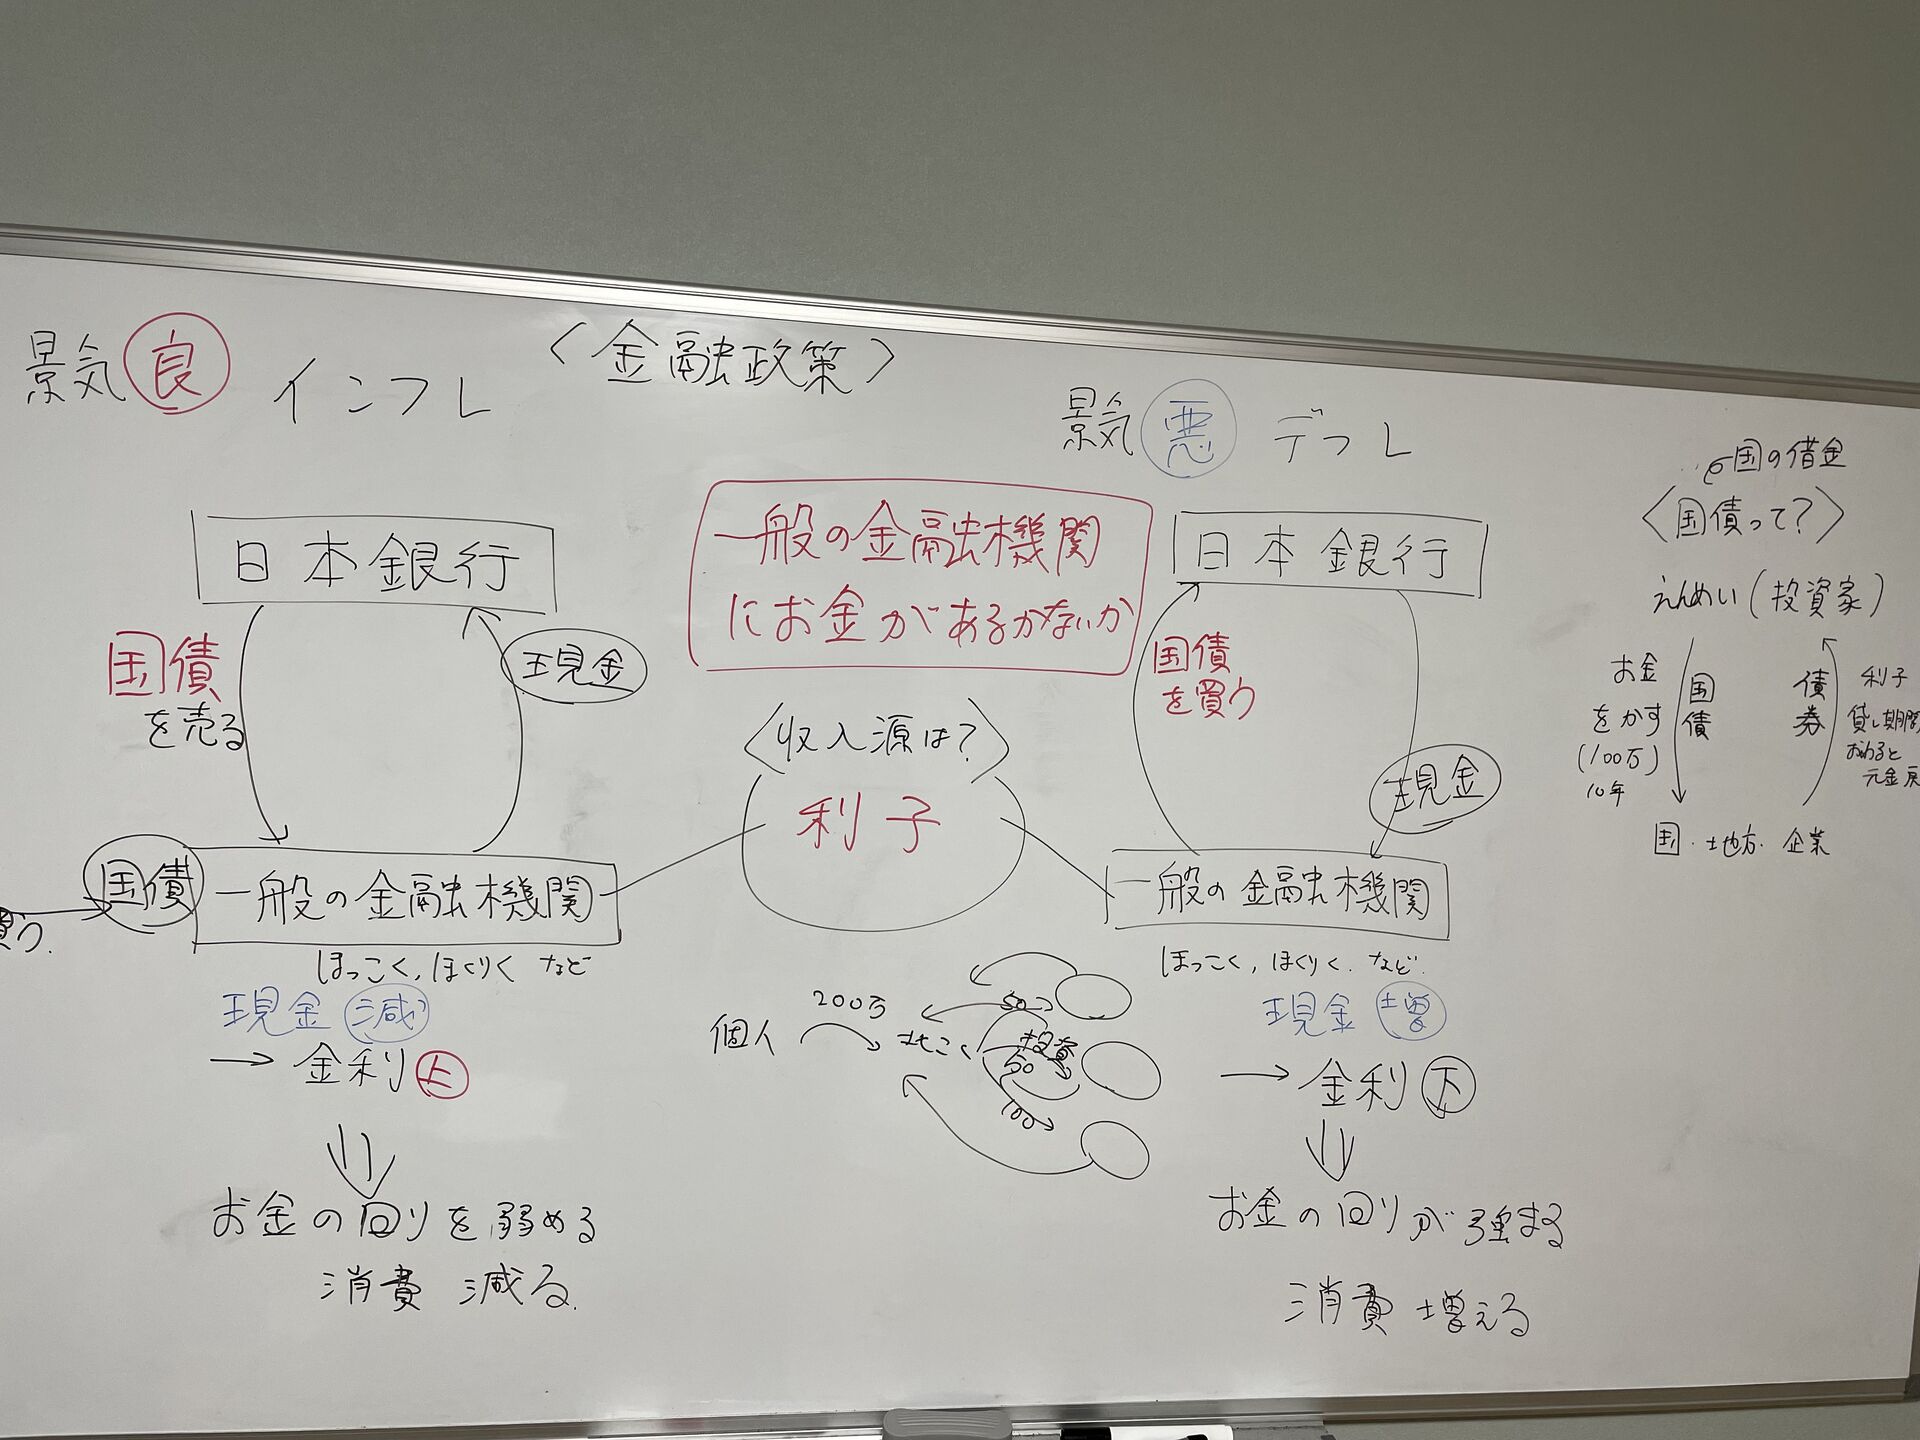 〈金融政策〉
景気 良 インフレ
日本銀行
国債
を売る
現金
国債
一般の金融機関
買う.
ほっこく, ほくりく など
現金 減
→ 金利 上
お金の回りを弱める
消費 減る.
一般の金融機関
にお金があるかないか
〈収入源は?〉
利子
個人
200万
ほっこく
50
投資
50
100
景気 悪 デフレ
日本銀行
国債
を買う
現金
一般の金融機関
ほっこく, ほくりく. など.
現金 増
→ 金利 下
お金の回りが強まる
消費 増える
国の借金
〈国債って?〉
えんめい (投資家)
お金
をかす
(100万)
10年
国債
債券
利子
貸し期間
おわると
元金戻
国・地方・企業